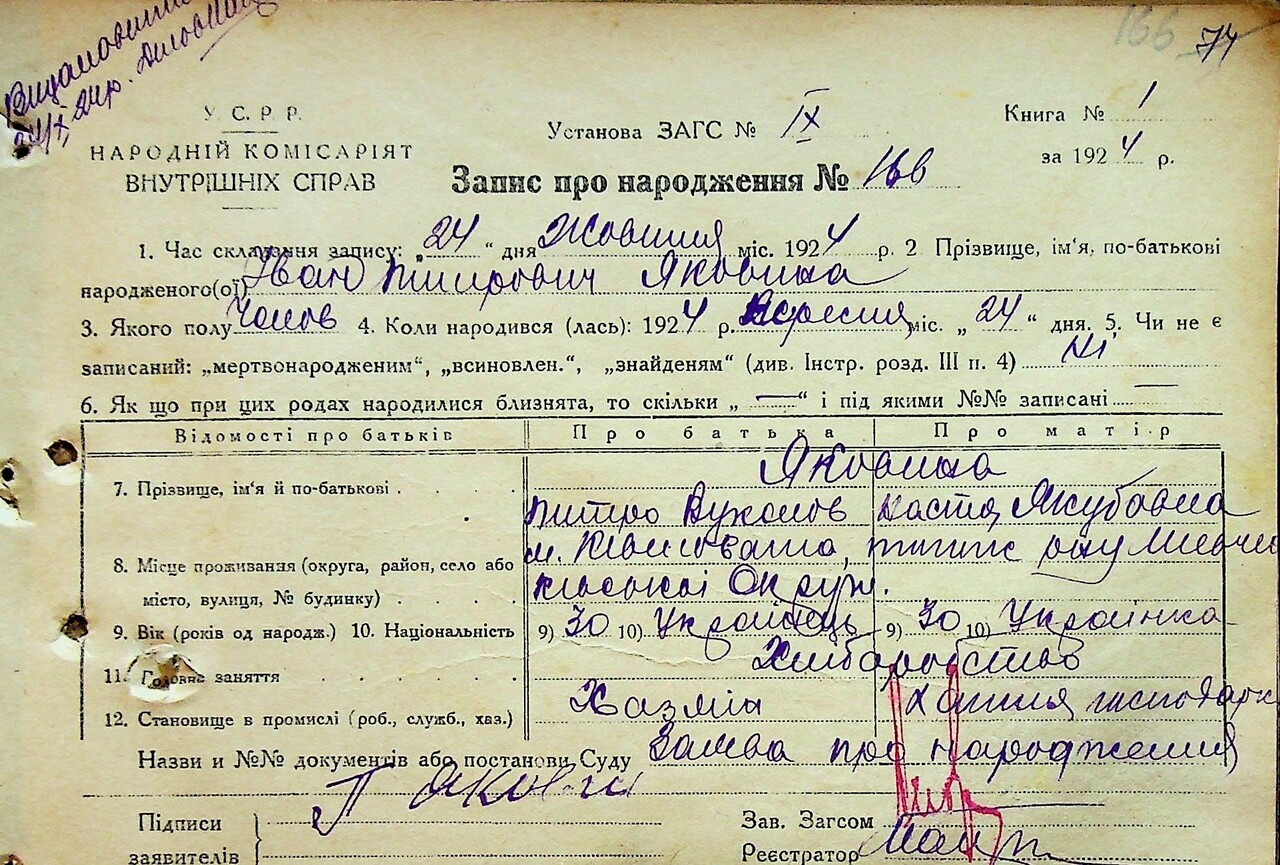 166 74
У С. Р Р.
НАРОДНІЙ КОМІСАРІЯТ
ВНУТРІШНІХ СПРАВ
Установа ЗАГС № IX
Книга № 1
за 1924 р.
Запис про народження № 166
1. Час складання запису: „24“ дня Жовтня міс. 1924 р. 2 Прізвище, ім‘я, по-батькові
народженого(ої) Іван Питрович Яковина
3. Якого полу Чолов 4. Коли народився (лась): 1924 р. Вересня міс. „24“ дня. 5. Чи не є
записаний: „мертвонародженим“, „всиновлен.“, „знайденям“ (див. Інстр. розд. III п. 4) Ні
6. Як що при цих родах народилися близнята, то скільки „—“ і під якими №№ записані —
Відомості про батьків Про батька Про матір
Яковина
7. Прізвище, ім‘я й по-батькові . . . .
Питро Вуколов Настя Якубовна
8. Місце проживання (округа, район, село або
місто, вулиця, № будинку) . . . .
Округ.
9. Вік (років од народж.) 10. Національність 9) 30 10) Українець 9) 30 10) Українка
11. Головне заняття . . . . . Хліборобство
12. Становище в промислі (роб., служб., хаз.) Хазяін Хатня господарк
Назви и №№ документів або постанови Суду Заява про народження
Підписи
заявителів
Зав. Загсом
Реєстратор